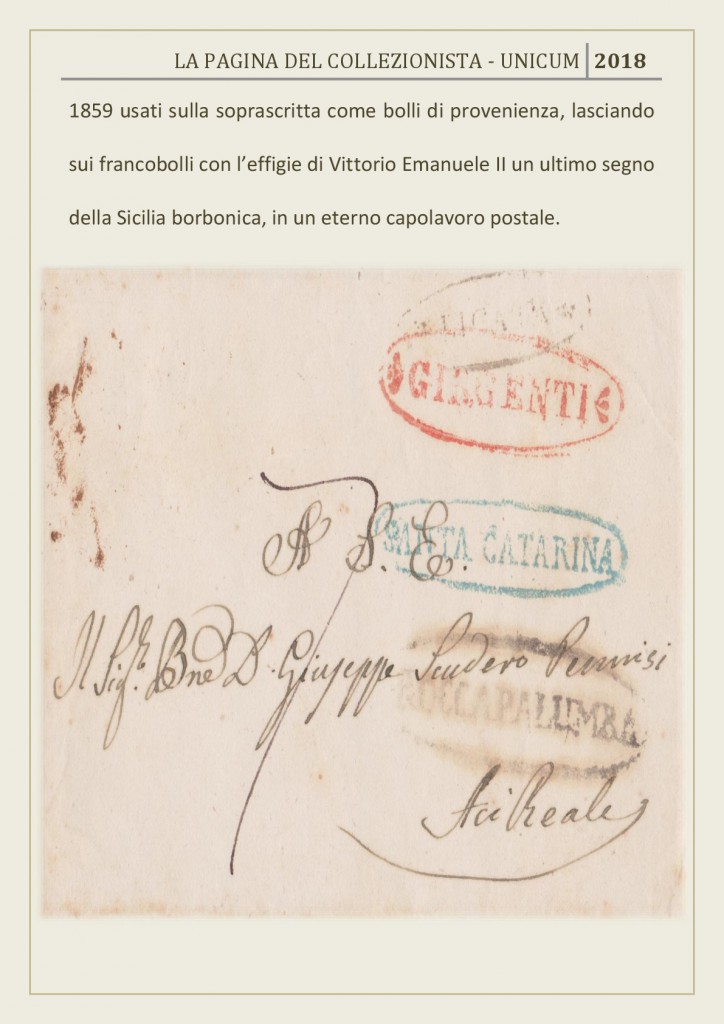 LA PAGINA DEL COLLEZIONISTA - UNICUM 2018
1859 usati sulla soprascritta come bolli di provenienza, lasciando
sui francobolli con l’effigie di Vittorio Emanuele II un ultimo segno
della Sicilia borbonica, in un eterno capolavoro postale.
GIRGENTI
SANTA CATARINA
A S. E.
Il Sig.r Bne D. Giuseppe Scudero Pennisi
PALUMBA
Aci Reale